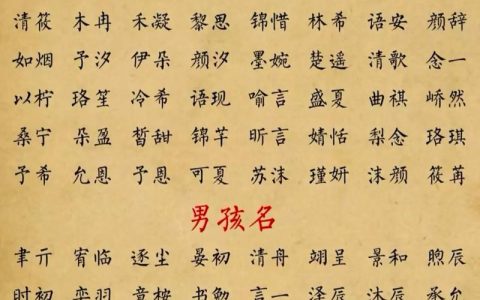 清筱 木冉 禾凝 黎思 锦惜 林希 语安 颜辞
如烟 予汐 伊朵 颜汐 墨婉 楚遥 清歌 念一
以柠 珞笙 冷希 语现 喻言 盛夏 曲祺 峤然
桑宁 朵盈 皙甜 锦芊 昕言 婧恬 梨念 珞琪
予希 允恩 予恩 可夏 苏沫 瑾妍 沫颜 筱苒
男孩名
聿亓 宥临 逐尘 晏初 清舟 翊呈 景和 煦辰
时初 奕羽 竟桉 书勉 言一 泽辰 沐辰 承允